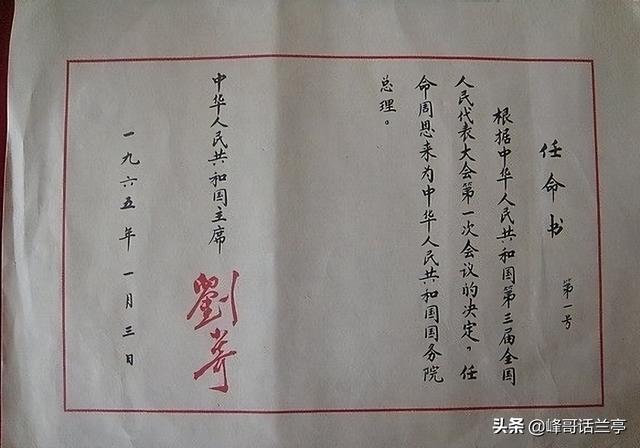 任命书
第一号
根据中华人民共和国第三届全国
人民代表大会第一次会议的决定，任
命周恩来为中华人民共和国国务院
总理。
中华人民共和国主席
劉少奇
一九六五年一月三日
头条 @峰哥话兰亭